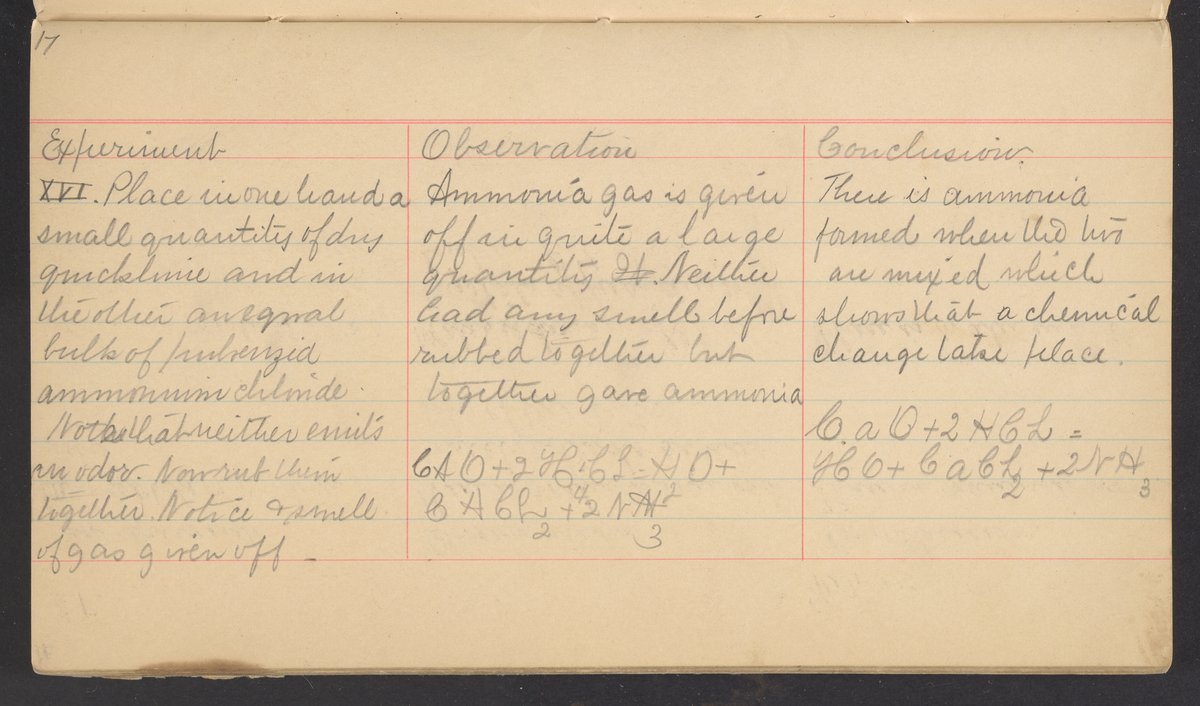 17
Experiment
XVI. Place in one hand a
small quantity of dry
quicklime and in
the other an equal
bulk of pulverized
ammonium chloride.
Note that neither emits
an odor. Now rub them
together. Notice & smell
of gas given off —
Observation
Ammonia gas is given
off in quite a large
quantity It. Neither
had any smell before
rubbed together but
together gave ammonia
CAO+2 H4CL=H2O+
CACL2+2NH3
Conclusion.
There is ammonia
formed when the two
are mixed which
shows that a chemical
change take place.
CaO+2HCL=
HO+CaCL2+2NH3